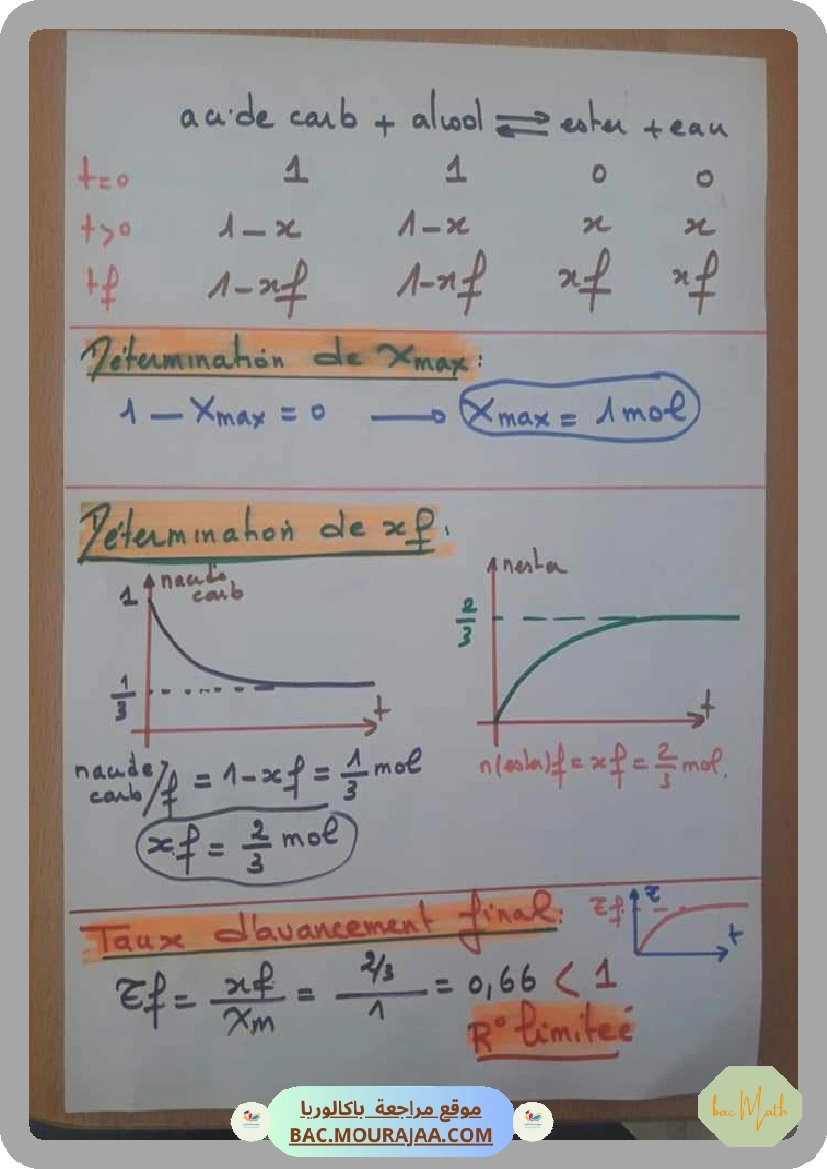 acide carb + alcool ⇌ ester + eau
t=0 1 1 0 0
t>0 1-x 1-x x x
tf 1-xf 1-xf xf xf
Détermination de Xmax:
1 - Xmax = 0 → Xmax = 1 mol
Détermination de xf:
n acide carb
1
1/3
t
n ester
2/3
t
n acide carb/f = 1-xf = 1/3 mol
xf = 2/3 mol
n(ester)f = xf = 2/3 mol.
Taux d'avancement final:
τf
τ
t
τf = xf/Xm = 2/3/1 = 0,66 < 1
R° limiteé
موقع مراجعة باكالوريا
BAC.MOURAJAA.COM
bac Math